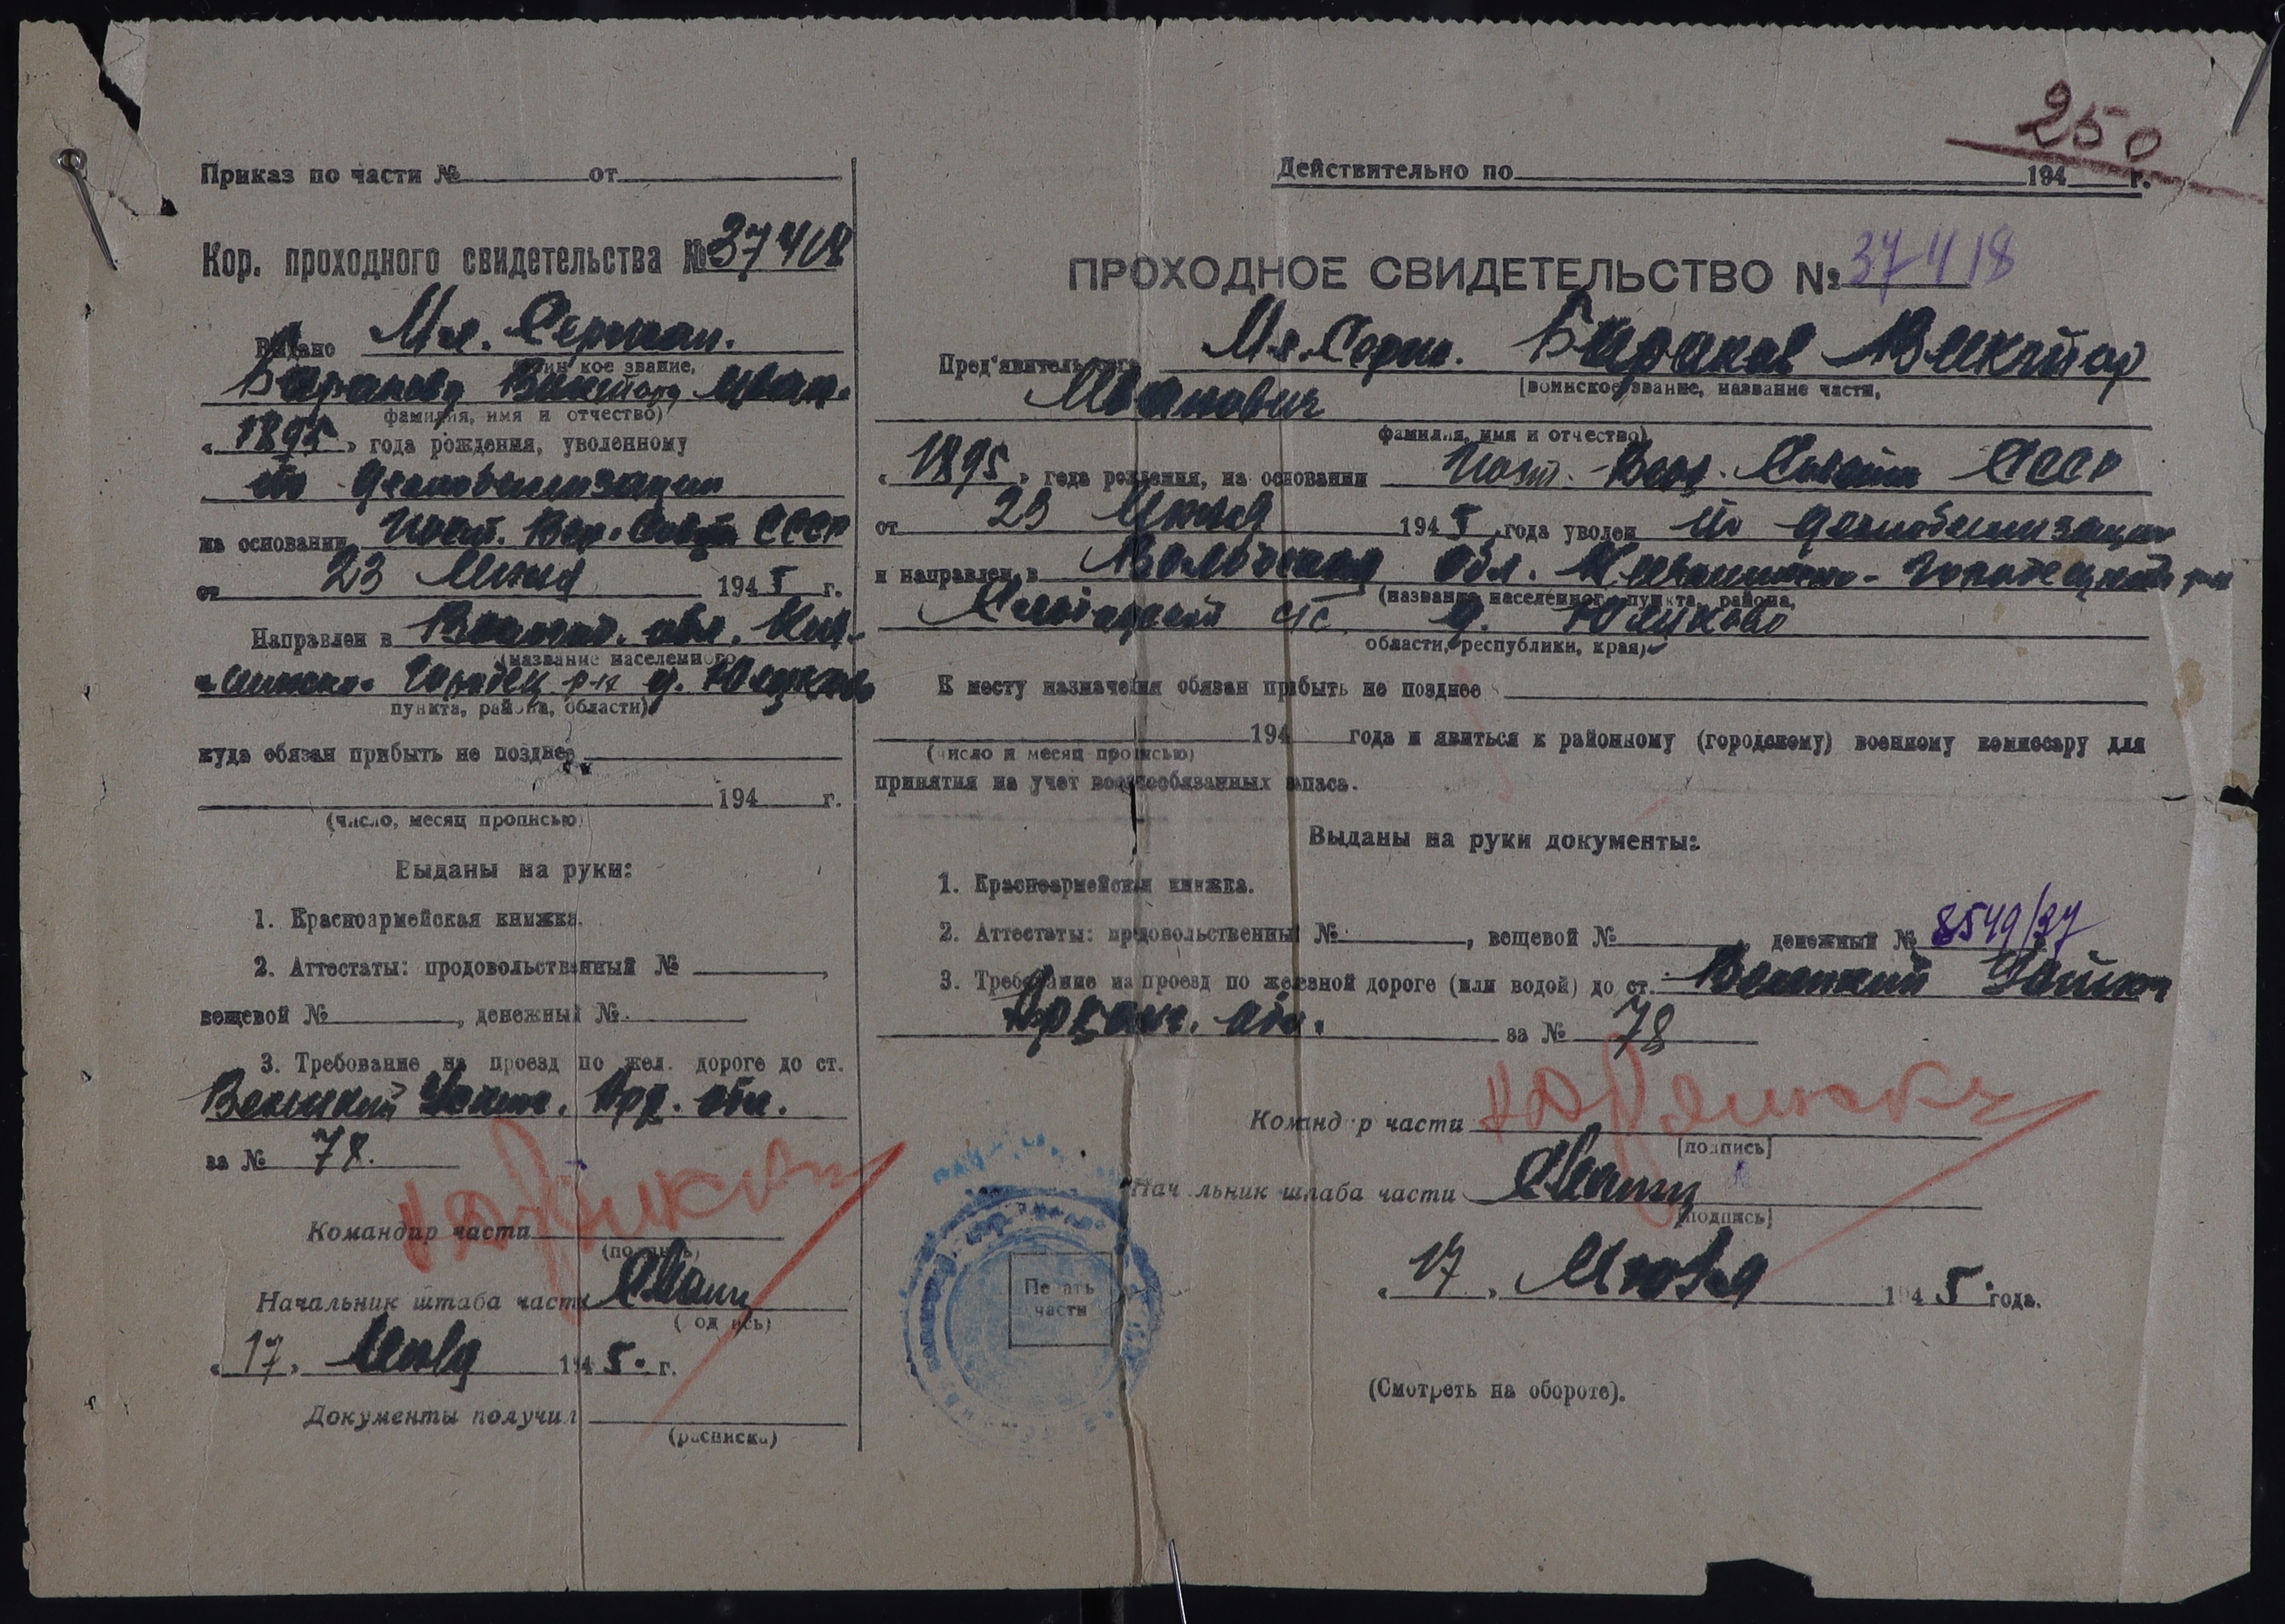 250
Приказ по части № от
Кор. проходного свидетельства № 37418
Выдано Мл. Сержан.
(воинское звание,
Баранову Виктору Иван.
фамилия, имя и отчество)
« 1895 » года рождения, уволенному
по демобилизации
на основании Пост. Вер. Совета СССР
от 23 Июня 1945 г.
Направлен в Вологод. обл. Кич-
(название населенного
Городец р-н д.
пункта, района, области)
куда обязан прибыть не позднее
194 г.
(число, месяц прописью)
Выданы на руки:
1. Красноармейская книжка.
2. Аттестаты: продовольственный № ,
вещевой № , денежный №
3. Требование на проезд по жел. дороге до ст.
Великий Устюг. Арх. обл.
за № 78.
Командир части
(подпись)
Начальник штаба части
(подпись)
« 17 » Июля 1945 г.
Документы получил
(расписка)
Действительно по 194 г.
ПРОХОДНОЕ СВИДЕТЕЛЬСТВО № 37418
Пред'явитель сего Мл. Серж. Баранов Виктор
(воинское звание, название части,
Иванович
фамилия, имя и отчество)
« 1895 » года рождения, на основании Пост. Верх. Совета СССР
от 23 Июня 1945 года уволен по демобилизации
и направлен в Вологодская обл. Городецкий р-н
(название населенного пункта, района,
с/с д.
области, республики, края)
К месту назначения обязан прибыть не позднее
194 года и явиться к районному (городскому) военному комиссару для
(число и месяц прописью)
принятия на учет военнообязанных запаса.
Выданы на руки документы:
1. Красноармейская книжка.
2. Аттестаты: продовольственный № , вещевой № , денежный № 8549/37
3. Требование на проезд по железной дороге (или водой) до ст. Великий Устюг
Арханг. обл. за № 78
Командир части
(подпись)
Начальник штаба части
(подпись)
« 17 » Июля 1945 года.
Печать
части
(Смотреть на обороте).